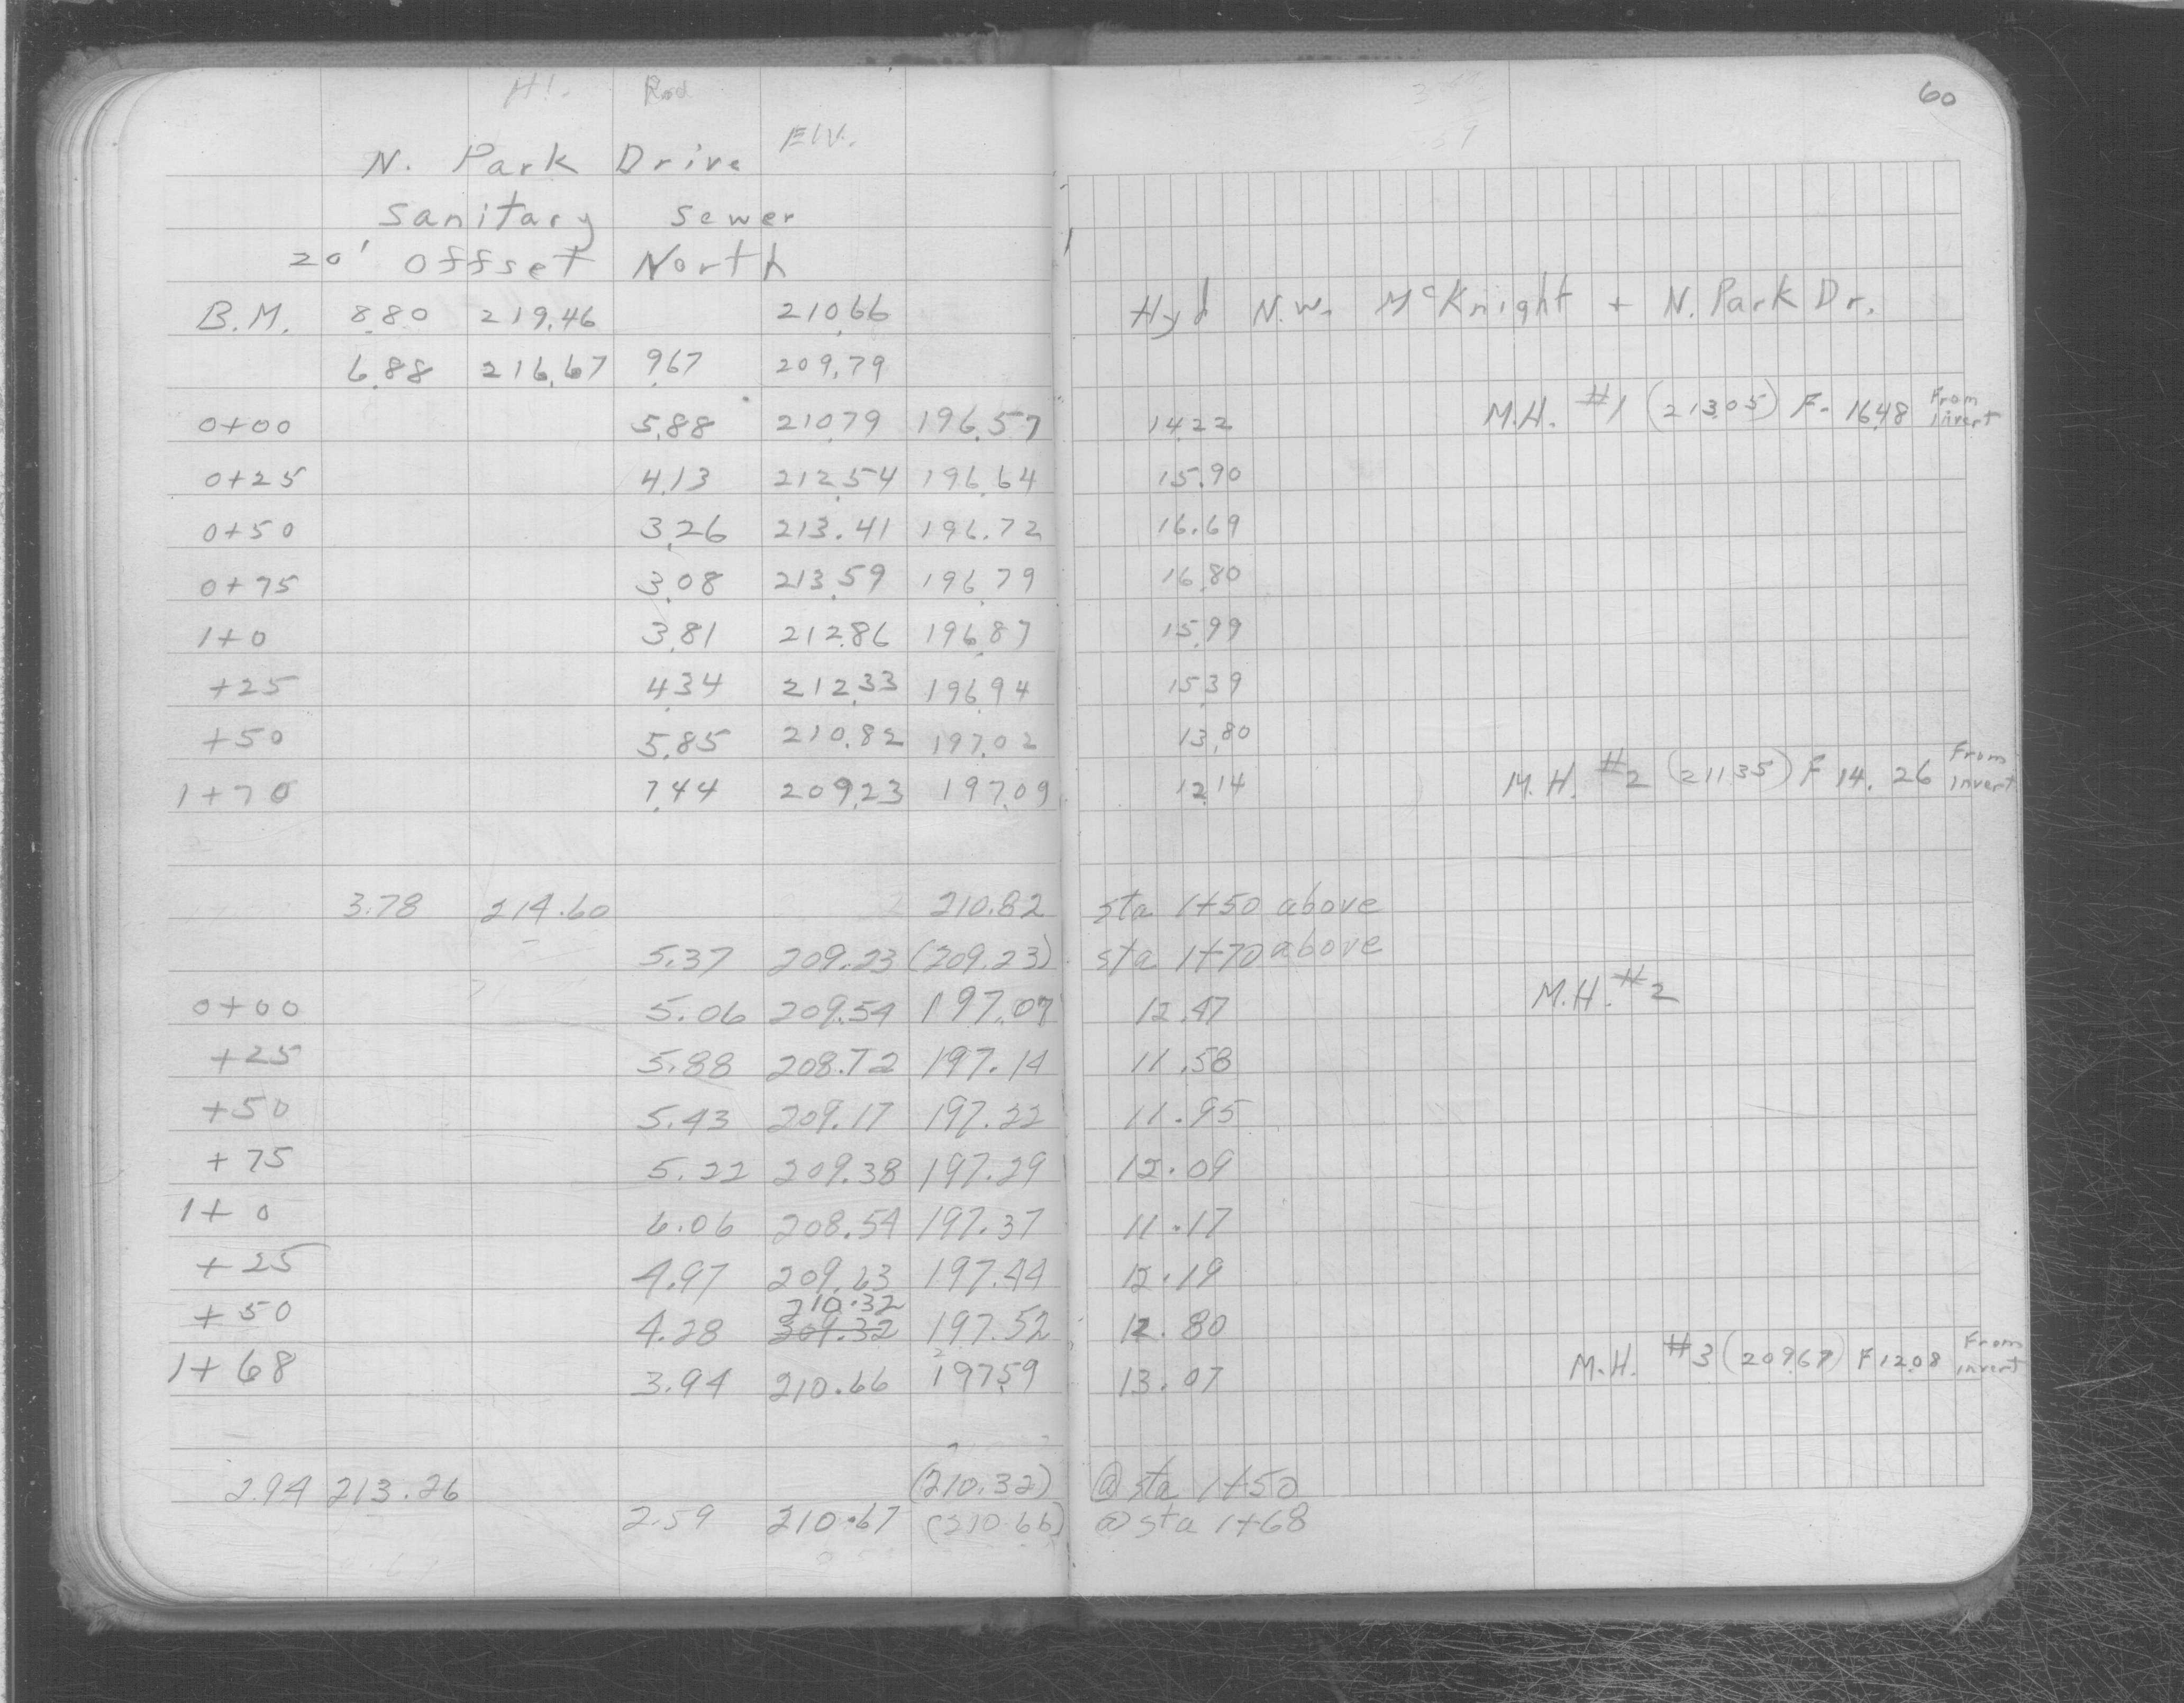 60
H.I. Rod
Elv.
N. Park Drive
Sanitary Sewer
20' Offset North
B.M. 8.80 219.46 210.66 Hyd N.W. McKnight + N. Park Dr.
6.88 216.67 9.67 209.79
0+00 5.88 210.79 196.57 14.22 M.H. #1 (213.05) F- 16.48 From Invert
0+25 4.13 212.54 196.64 15.90
0+50 3.26 213.41 196.72 16.69
0+75 3.08 213.59 196.79 16.80
1+0 3.81 212.86 196.87 15.99
+25 4.34 212.33 196.94 15.39
+50 5.85 210.82 197.02 13.80
1+70 7.44 209.23 197.09 12.14 M.H. #2 (211.35) F 14.26 From Invert
3.78 214.60 210.82 sta 1+50 above
5.37 209.23 (209.23) sta 1+70 above
0+00 5.06 209.54 197.07 12.47 M.H. #2
+25 5.88 208.72 197.14 11.58
+50 5.43 209.17 197.22 11.95
+75 5.22 209.38 197.29 12.09
1+0 6.06 208.54 197.37 11.17
+25 4.97 209.63 197.44 12.19
210.32
+50 4.28 309.32 197.52 12.80
1+68 3.94 210.66 197.59 13.07 M.H. #3 (209.67) F 12.08 From Invert
2.94 213.26 (210.32) @ sta 1+50
2.59 210.67 (210.66) @ sta 1+68